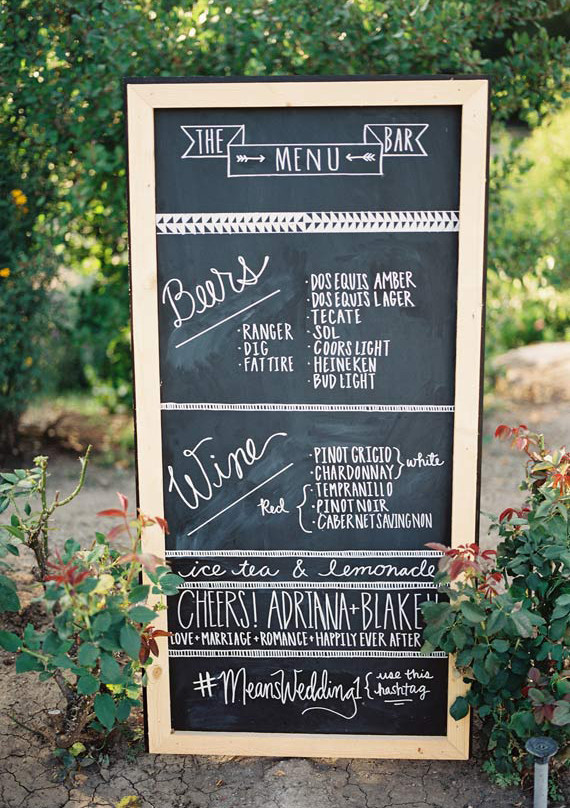 THE MENU BAR
Beers
· RANGER
· DIG
· FAT TIRE
· DOS EQUIS AMBER
· DOS EQUIS LAGER
· TECATE
· SOL
· COORS LIGHT
· HEINEKEN
· BUD LIGHT
Wine
· PINOT GRIGIO
· CHARDONNAY
white
Red
· TEMPRANILLO
· PINOT NOIR
· CABERNET SAVINGNON
ice tea & lemonade
CHEERS! ADRIANA+BLAKE!
LOVE + MARRIAGE + ROMANCE + HAPPILY EVER AFTER
#MeansWedding1 { use this
hashtag